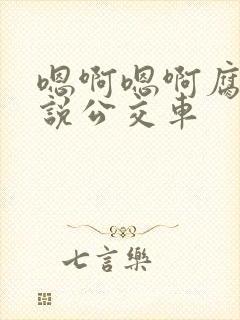 嗯啊嗯啊腐
說公交車
七言樂